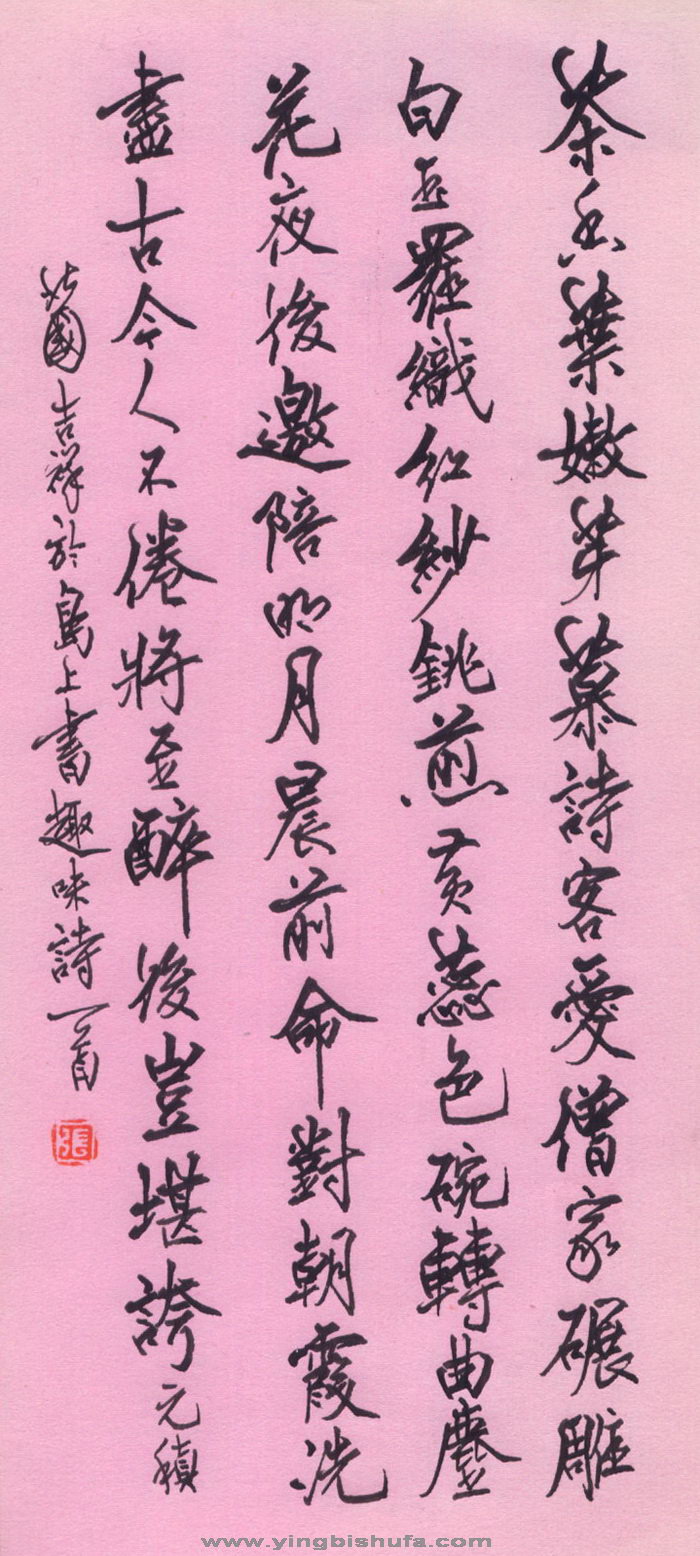 茶香葉嫩芽慕詩客愛僧家碾雕
白玉羅織紅紗銚煎黃蕊色碗轉曲塵
花夜後邀陪明月晨前命對朝霞洗
盡古今人不倦將至醉後豈堪誇元稹
北國吉祥於島上書趣味詩一首
張
www.yingbishufa.com